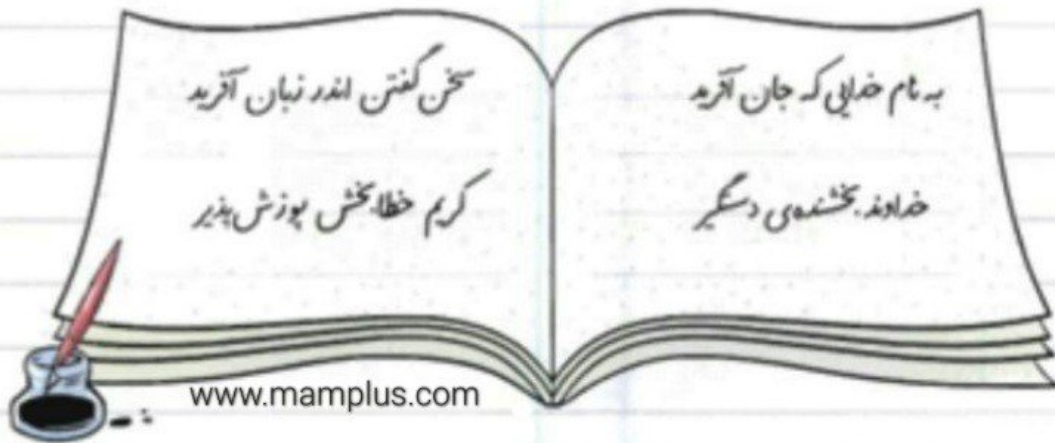 به نام خدایی که جان آفرید
سخن گفتن اندر زبان آفرید
خداوند بخشنده‌ی دستگیر
کریم خطابخش پوزش پذیر
www.mamplus.com